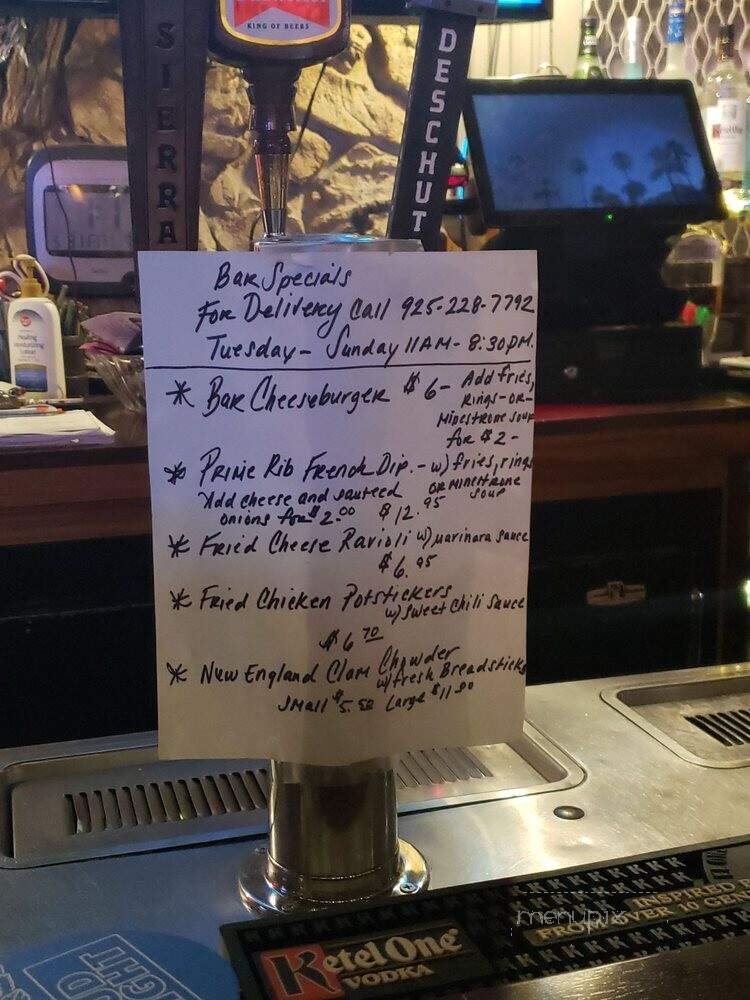 KING OF BEERS
SIERRA
DESCHUT
Ketel One
Healing
Moisturizing
Lotion
Bar Specials
For Delivery Call 925-228-7792
Tuesday - Sunday 11AM - 8:30PM.
* Bar Cheeseburger $6- Add fries,
Rings-OR-
Minestrone Soup
for $2-
* Prime Rib French Dip. - w/ fries, rings
OR Minestrone
Soup
Add cheese and sauteed
onions for $2.00 $12.95
* Fried Cheese Ravioli w/ Marinara Sauce
$6.95
* Fried Chicken Potstickers
w/ Sweet Chili Sauce
$6 70
* New England Clam Chowder
w/ fresh Breadsticks
Small $5.50 Large $11.00
menupix
INSPIRED
FROM OVER 10 GEN
Ketel One
VODKA